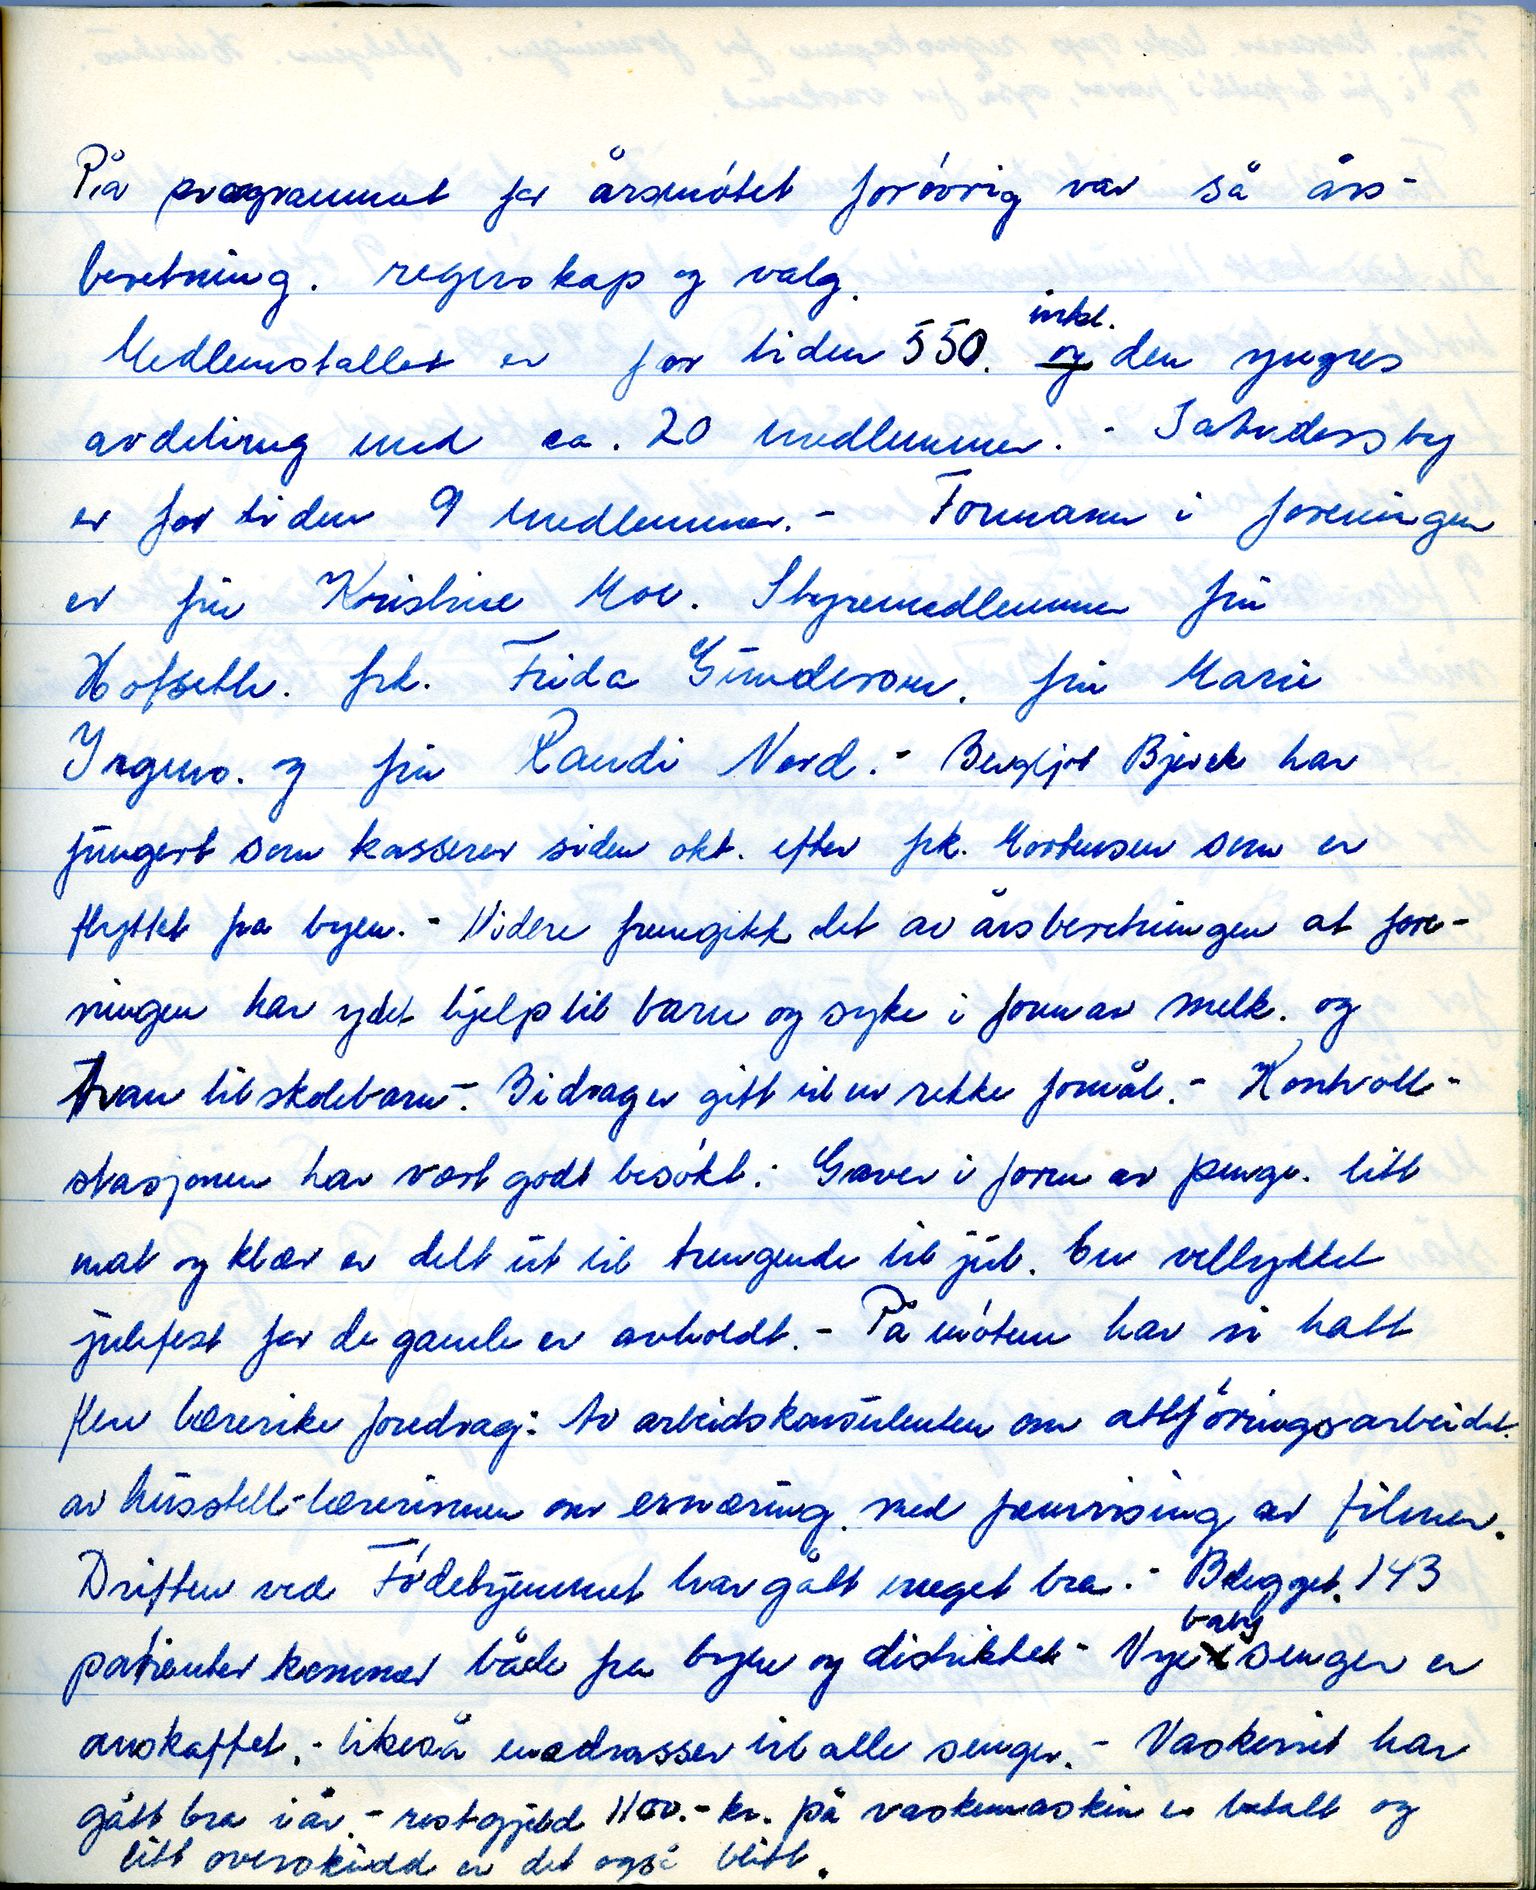 På programmet for årsmötet forövrig var så års-
beretning. regnskap og valg.
Medlemstallet er for tiden 550. inkl. den yngres
avdeling med ca. 20 medlemmer. -
er for tiden 9 medlemmer. - Formann i foreningen
er frü Kristine Moe. Styremedlemmer frü
Hofseth. frk. Frida Gündersen. frü Marie
Yrgens. og frü Randi Nord. - Bergljot Bjerck har
füngert som kasserer siden okt. efter frk. Mortensen som er
flyttet fra byen. - Videre fremgikk det av årsberetningen at fore-
ningen har ydet hjelp til barn og syke i form av melk. og
tran til skolebarn -. Bidrag er gitt til en rekke formål. - Kontroll-
stasjonen har vært godt besökt. Gaver i form av penge. litt
mat og klær er delt üt til trengende til jül. En vellykket
julefest for de gamle er avholdt. - På möteme har vi hatt
flere lærerike foredrag: Av arbeidskonsülenten om attföringsarbeidet.
av hüsstell-lærerinnen om ernæring. med fremvising av filmer.
Driften ved Födehjemmet har gått meget bra. - Belegget. 143
patienter kommer både fra byen og distriktet - Nye babysenger er
anskaffet. - likeså madrasser til alle senger. - Vaskeriet har
gått bra i år. - restgjeld 1100.- kr. på vaskemaskin er betalt og
litt overskudd er det også blitt.